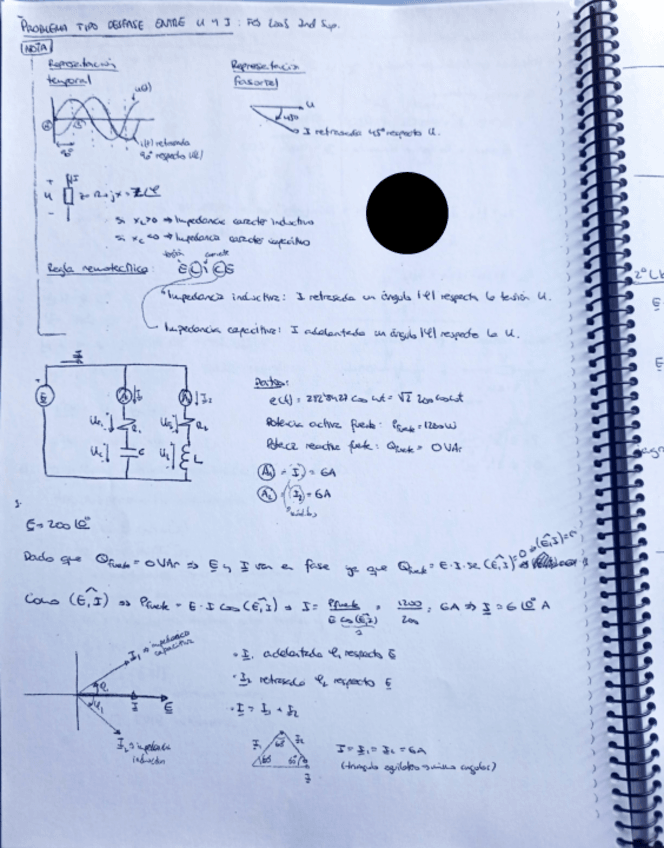 PROBLEMA TIPO DESFASE ENTRE U Y I:
NOTA
Representación temporal
Representación fasorial
u(t)
i(t) retrasada 90° respecto u(t)
90°
U
45°
I retrasada 45° respecto U.
+ U -
I
Z = R + jX = Z∠φ
si X>0 → Impedancia caracter inductivo
si X<0 → Impedancia caracter capacitivo
tensión corriente
Regla nemotecnica: E L I C E
Impedancia inductiva: I retrasada un ángulo |φ| respecto la tensión U.
Impedancia capacitiva: I adelantada un ángulo |φ| respecto la U.
I
E
A I1
A I2
R1
R2
C
L
Datos:
e(t) = 282'8427 cos ωt = √2 200 cos ωt
Potencia activa fuente: Pfuente = 1200 W
Potencia reactiva fuente: Qfuente = 0 VAr
A1 = I1 = 6A
A2 = I2 = 6A
E = 200 ∠0°
Dado que Qfuente = 0 VAr ⇒ E y I van en fase ya que Qfuente = E · I · se (E,I) = 0
Como (E,I) ⇒ Pfuente = E · I cos (E,I) ⇒ I = Pfuente / E cos (E,I) = 1200 / 200 = 6A ⇒ I = 6 ∠0° A
I1 ⇒ impedancia capacitiva
I
E
I2 ⇒ impedancia inductiva
· I1 adelantada φ1 respecto E
· I2 retrasada φ2 respecto E
· I = I1 + I2
I1
I2
60°
60°
60°
I
I = I1 = I2 = 6A